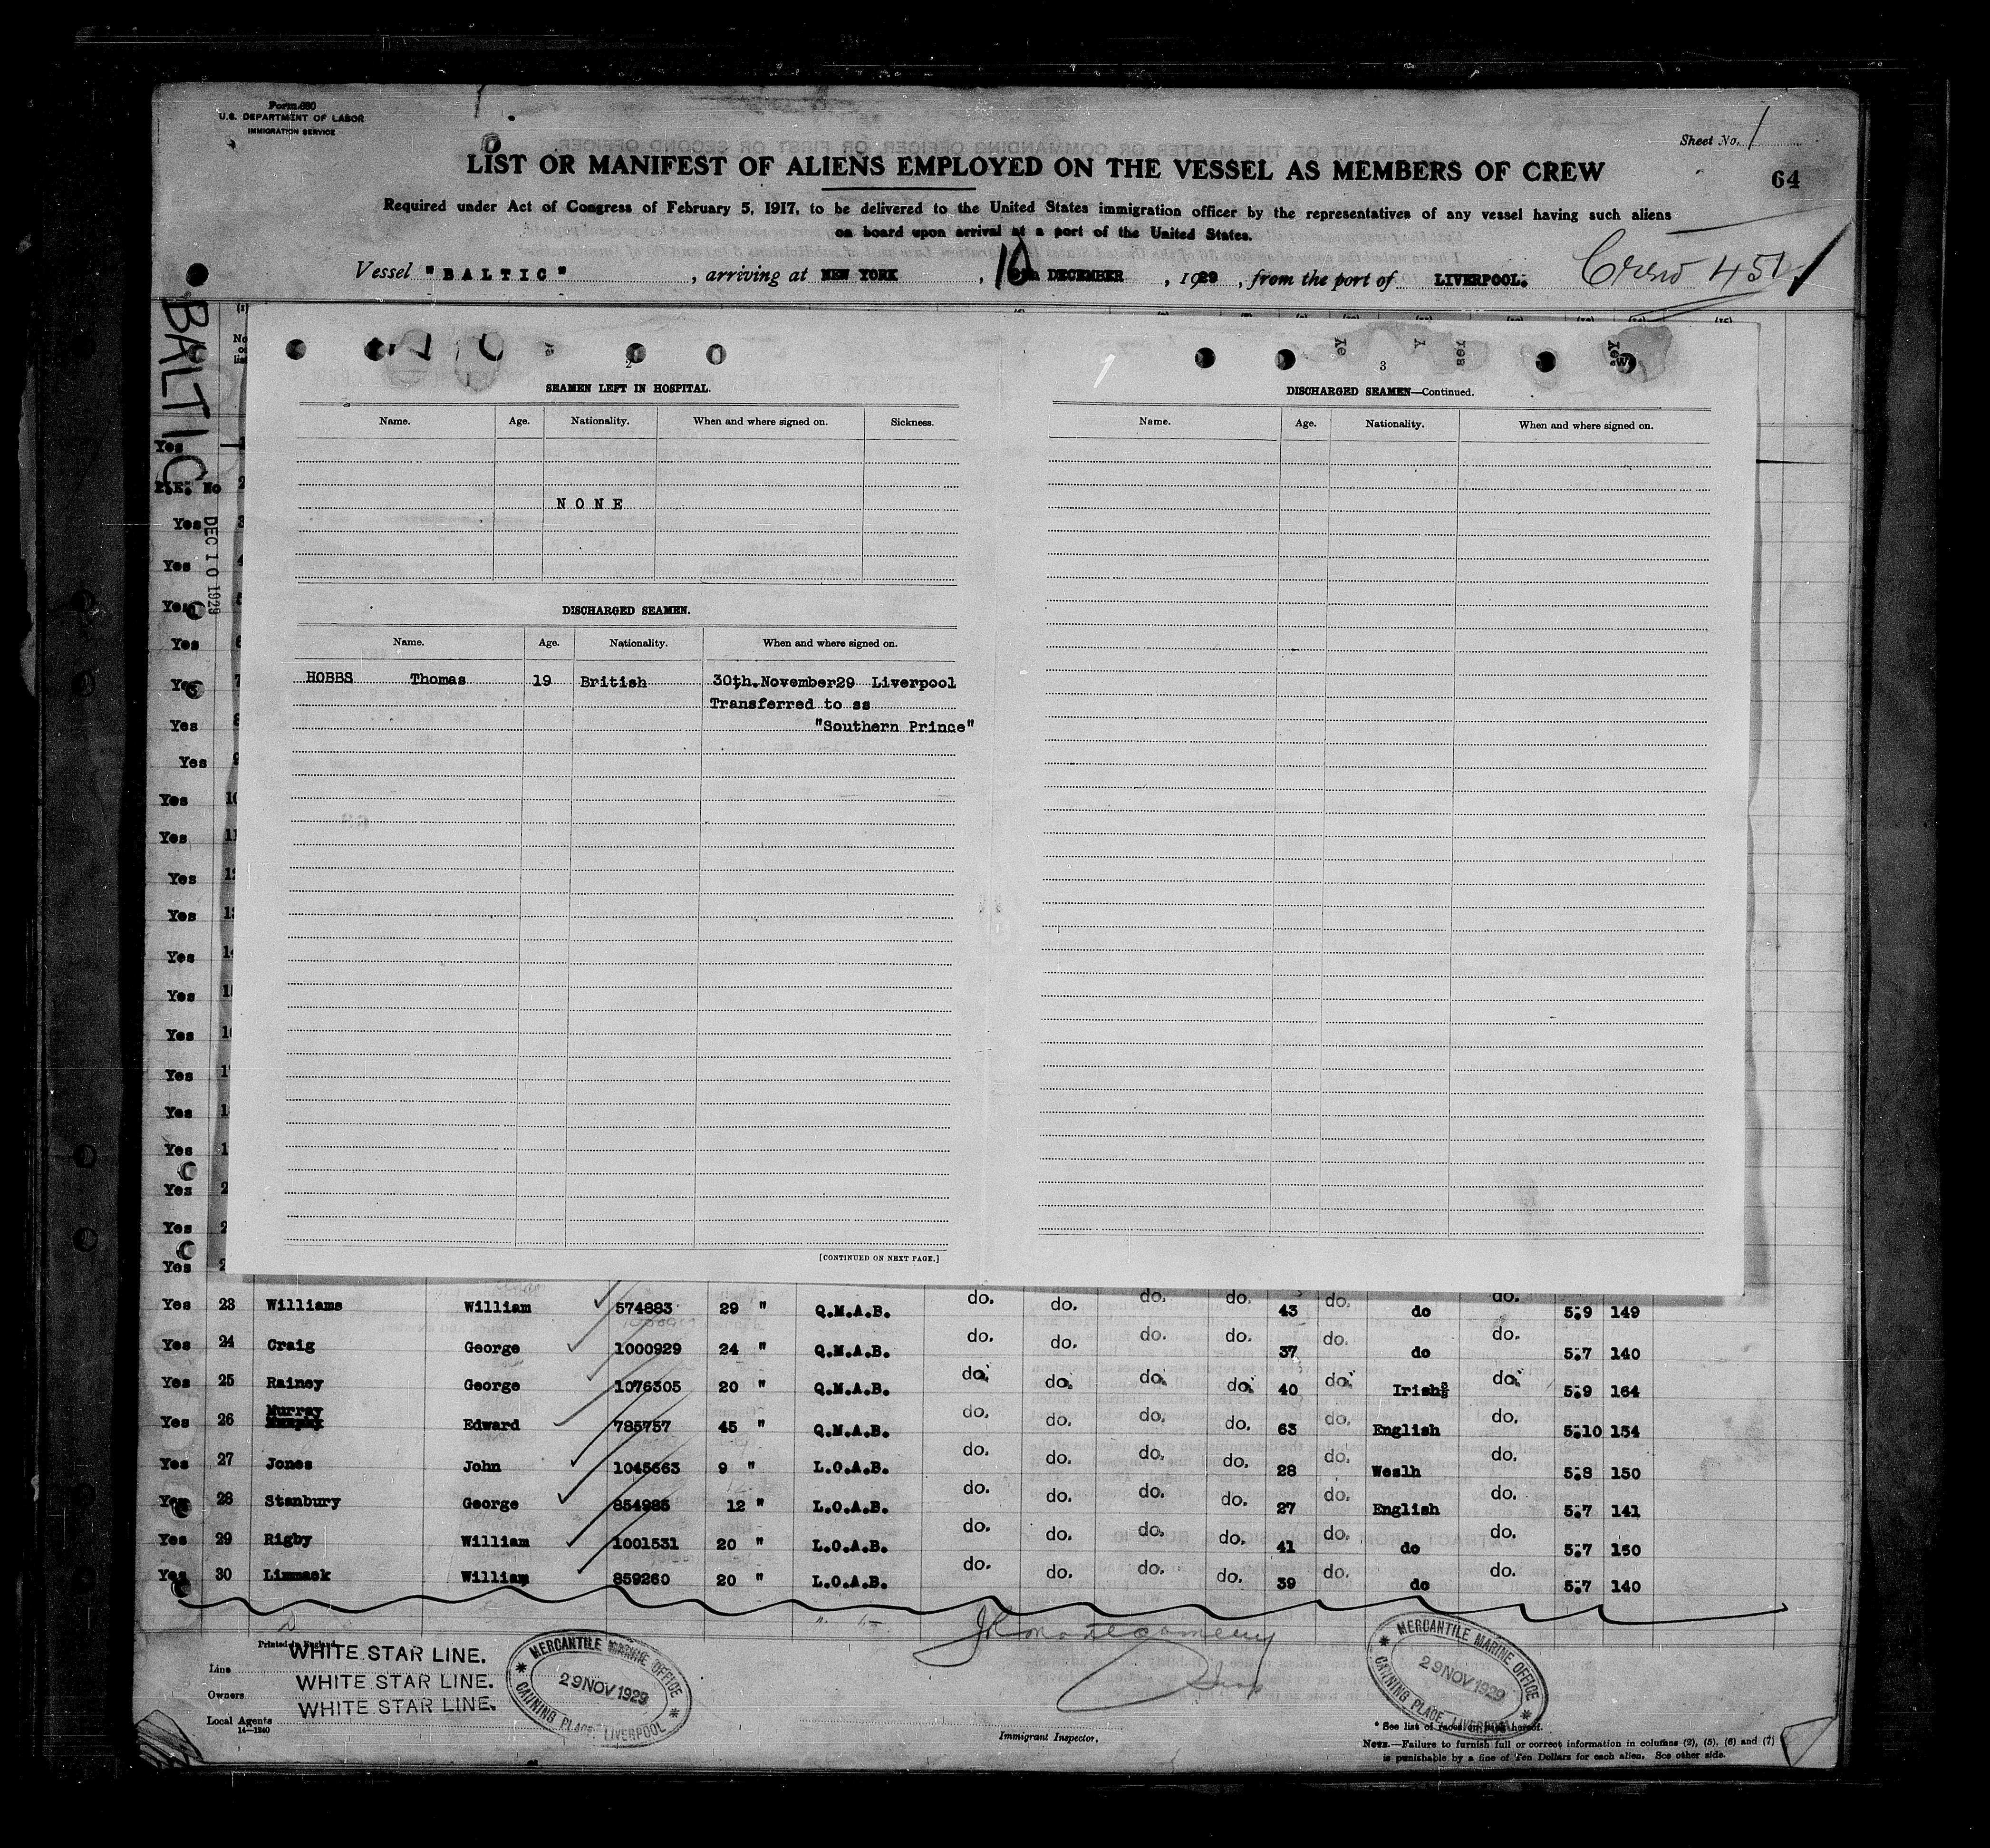 Form 680
U.S. DEPARTMENT OF LABOR
IMMIGRATION SERVICE
Sheet No. 1
LIST OR MANIFEST OF ALIENS EMPLOYED ON THE VESSEL AS MEMBERS OF CREW
64
Required under Act of Congress of February 5, 1917, to be delivered to the United States immigration officer by the representatives of any vessel having such aliens
on board upon arrival at a port of the United States.
Vessel "BALTIC", arriving at NEW YORK, 10th DECEMBER, 1929, from the port of LIVERPOOL.
Crew 451
BALTIC
DEC 10 1929
2
SEAMEN LEFT IN HOSPITAL.
Name. Age. Nationality. When and where signed on. Sickness.
NONE
DISCHARGED SEAMEN.
Name. Age. Nationality. When and where signed on.
HOBBS Thomas 19 British 30th.November29 Liverpool
Transferred to ss
"Southern Prince"
[CONTINUED ON NEXT PAGE.]
3
DISCHARGED SEAMEN—Continued.
Name. Age. Nationality. When and where signed on.
Yes 1
P.E. No 2
Yes 3
Yes 4
Yes 5
Yes 6
Yes 7
Yes 8
Yes 9
Yes 10
Yes 11
Yes
Yes
Yes
Yes
Yes
Yes
Yes
Yes
Yes
Yes
Yes
Yes 23 Williams William 574883 29 " Q.M.A.B. do. do. do. do. 43 do. do do. 5.9 149
Yes 24 Craig George 1000929 24 " Q.M.A.B. do. do. do. do. 37 do. do do. 5.7 140
Yes 25 Rainey George 1076305 20 " Q.M.A.B. do. do. do. do. 40 do. Irish do. 5.9 164
Yes 26 Murray Edward 785757 45 " Q.M.A.B. do. do. do. do. 63 do. English do. 5.10 154
Yes 27 Jones John 1045663 9 " L.O.A.B. do. do. do. do. 28 do. Weslh do. 5.8 150
Yes 28 Stanbury George 854985 12 " L.O.A.B. do. do. do. do. 27 do. English do. 5.7 141
Yes 29 Rigby William 1001531 20 " L.O.A.B. do. do. do. do. 41 do. do do. 5.7 150
Yes 30 Limmack William 859260 20 " L.O.A.B. do. do. do. do. 39 do. do do. 5.7 140
Printed in England
Line WHITE STAR LINE.
Owners WHITE STAR LINE.
Local Agents WHITE STAR LINE.
14—1240
MERCANTILE MARINE OFFICE
29 NOV 1929
CANNING PLACE, LIVERPOOL
Immigrant Inspector.
MERCANTILE MARINE OFFICE
29 NOV 1929
CANNING PLACE, LIVERPOOL
* See list of races on back hereof.
NOTE.—Failure to furnish full or correct information in columns (2), (5), (6) and (7)
is punishable by a fine of Ten Dollars for each alien. See other side.